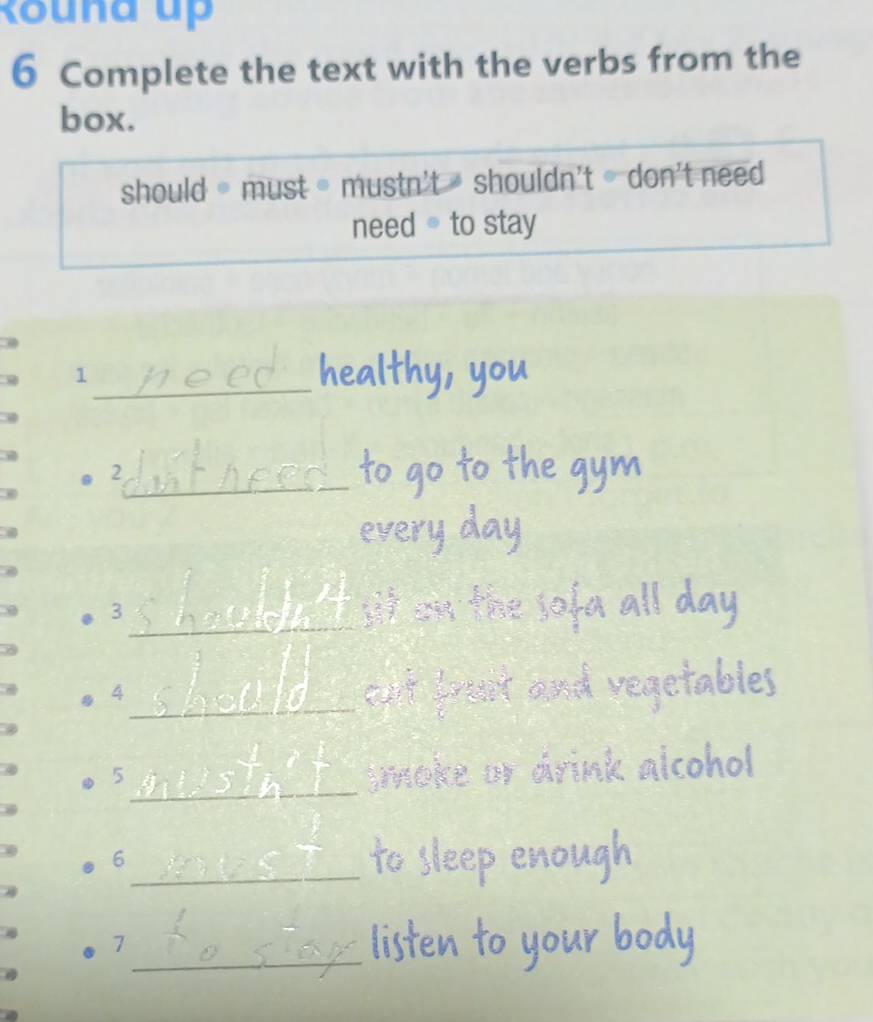 Round up
6 Complete the text with the verbs from the
box.
should • must • mustn't • shouldn't • don't need
need • to stay
1 need healthy, you
• 2 don't need to go to the gym
every day
• 3 shouldn't sit on the sofa all day
• 4 should eat fruit and vegetables
• 5 mustn't smoke or drink alcohol
• 6 must to sleep enough
• 7 to stay listen to your body